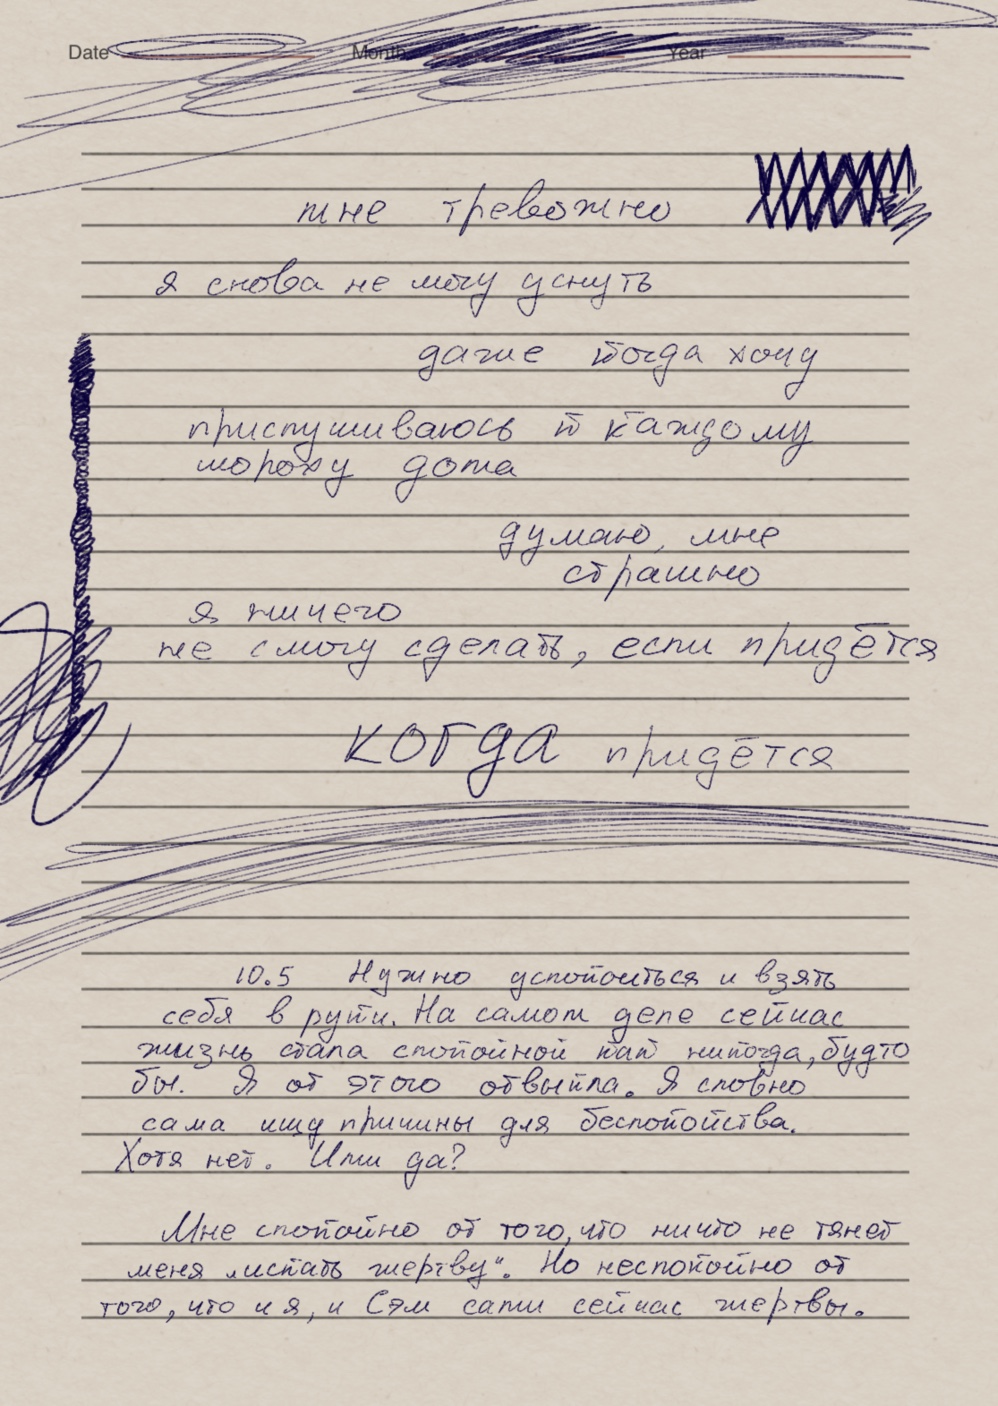 Date Month Year
мне тревожно
я снова не могу уснуть
даже когда хочу
прислушиваюсь к каждому
шороху дома
думаю, мне
страшно
я ничего
не смогу сделать, если придётся
когда придётся
10.5 Нужно успокоиться и взять
себя в руки. На самом деле сейчас
жизнь стала спокойной как никогда, будто
бы. Я от этого отвыкла. Я словно
сама ищу причины для беспокойства.
Хотя нет. Или да?
Мне спокойно от того, что ничто не тянет
меня „искать жертву“. Но неспокойно от
того, что и я, и Сэм сами сейчас жертвы.